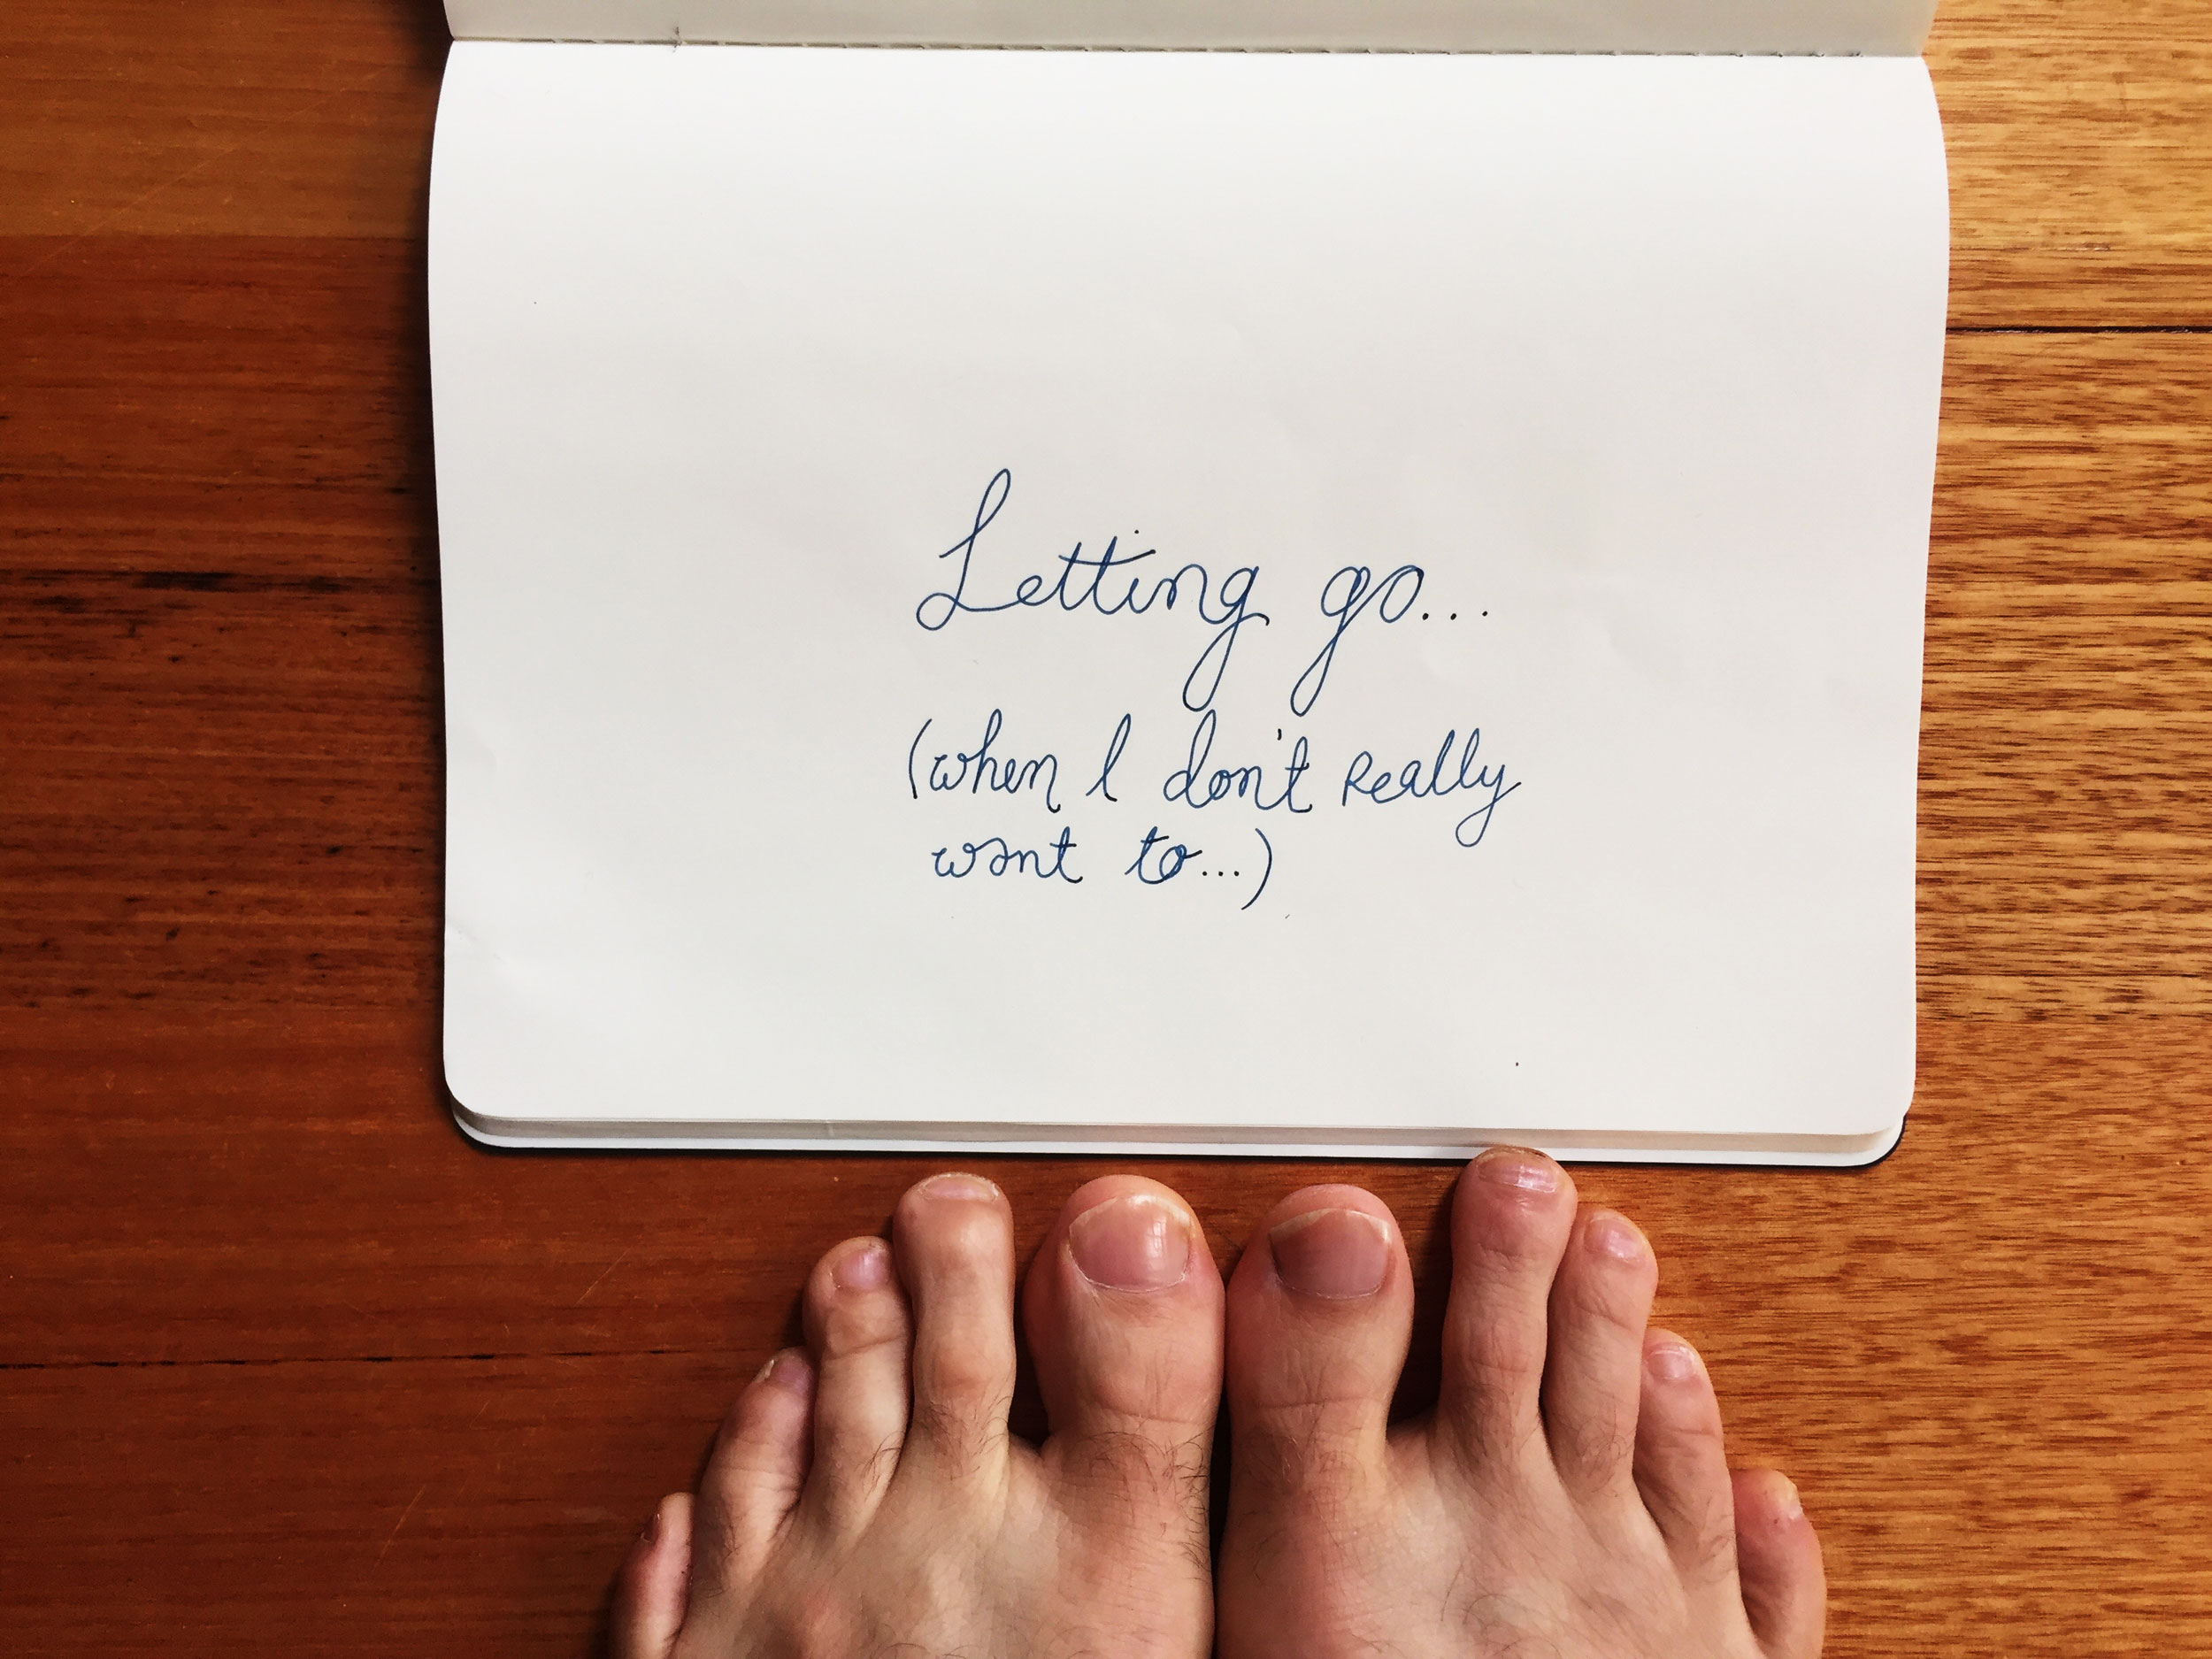 Letting go...
(when I don't Really
want to...)